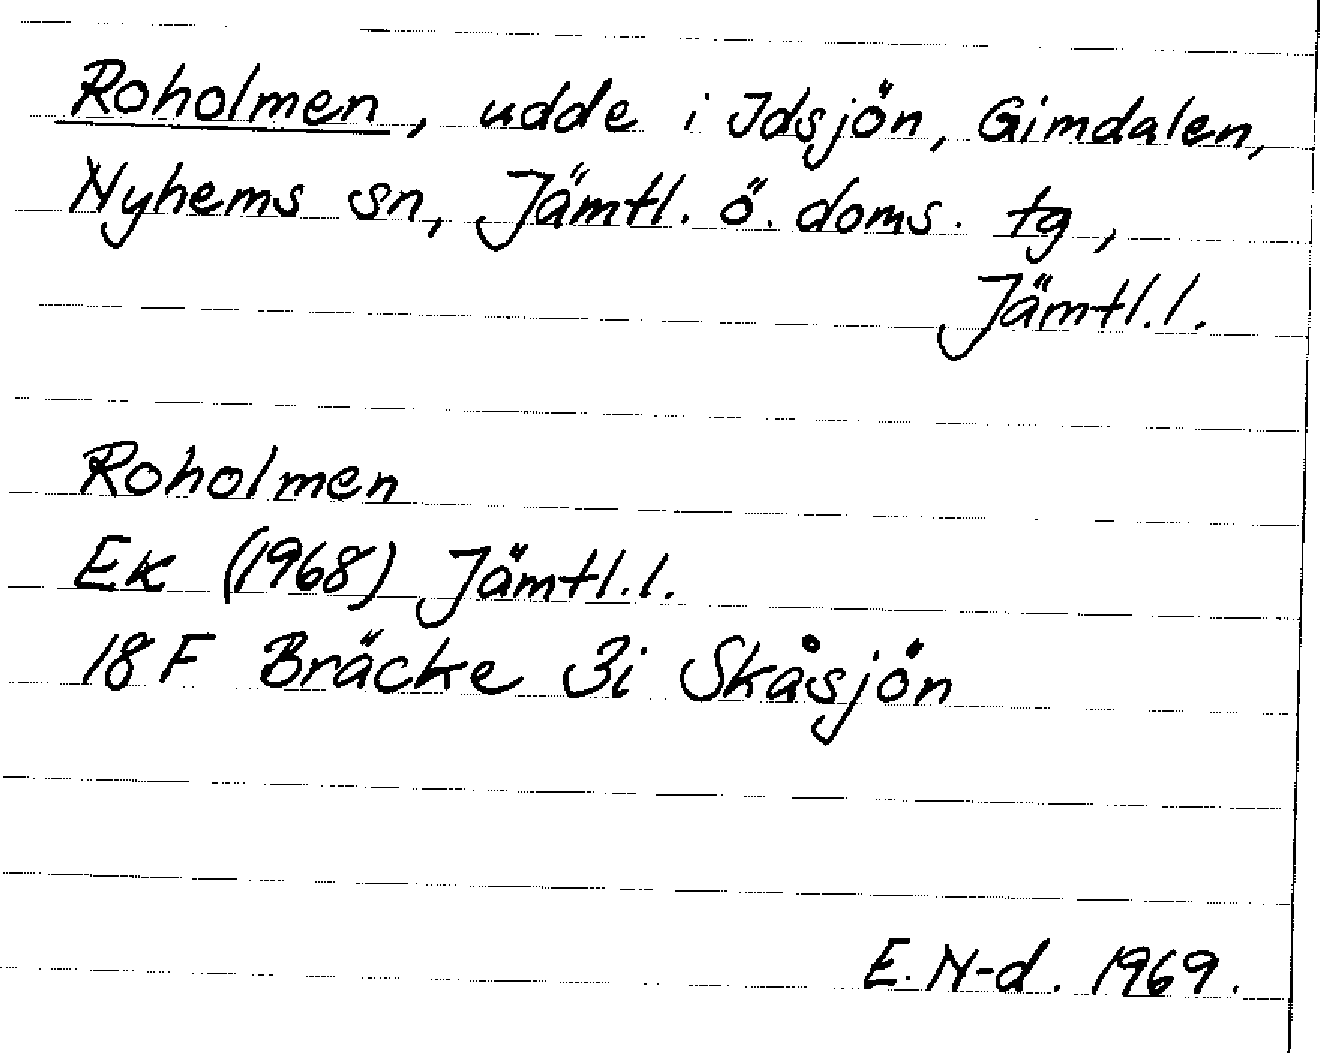 Roholmen, udde i Idsjön, Gimdalen,
Nyhems sn, Jämtl. ö. doms. tg,
Jämtl.l.
Roholmen
Ek (1968) Jämtl.l.
18 F Bräcke 3i Skåsjön
E. N-d. 1969.